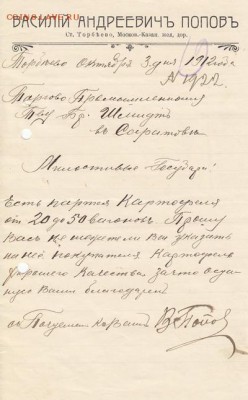 ВАСИЛІЙ АНДРЕЕВИЧЪ ПОПОВЪ
Ст. Торбѣево, Москов.-Казан. жел. дор.
Торбѣево Октября 3 дня 1912 года
№ 1922
Торгово Промышленному
Т-ву Бр. Шмидтъ
въ Саратовѣ
Милостивые Государи!
Есть партія Картофеля
отъ 20 до 50 вагоновъ Прошу
Васъ не можете ли Вы указать
мнѣ покупателя Картофель
хорошего Качества зачто
Вамъ благодаренъ
съ къ Вамъ В Поповъ